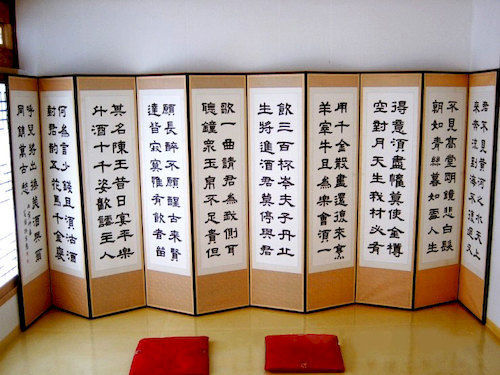 君不見黃河之水天上
來奔流到海不復回又
不見高堂明鏡悲白髮
朝如青絲暮如雪人生
得意須盡懽莫使金樽
空對月天生我材必有
用千金散盡還復來烹
羊宰牛且爲樂會須一
飮三百杯岑夫子丹丘
生將進酒君莫停與君
歌一曲請君爲我側耳
聽鐘鼎玉帛不足貴但
願長醉不願醒古來賢
達皆寂寞惟有飮者留
其名陳王昔日宴平樂
斗酒十千恣歡謔主人
何爲言少錢且須沽酒
對君酌五花馬千金裘
呼兒將出換美酒與爾
同銷萬古愁